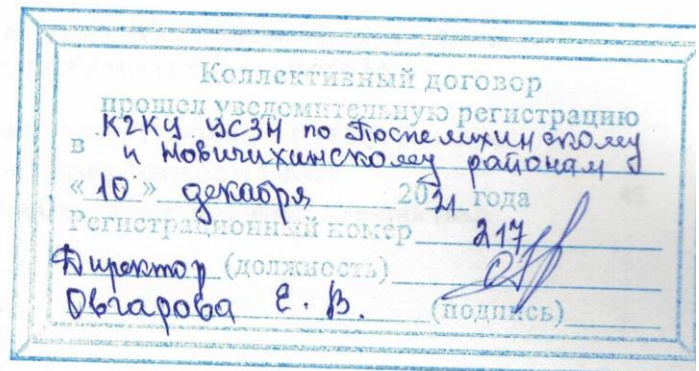 Коллективный договор
прошел уведомительную регистрацию
в КГКУ УСЗН по Поспелихинскому
и Новичихинскому районам
«10» декабря 2021 года
Регистрационный номер 217
Директор (должность)
Овчарова Е. В. (подпись)